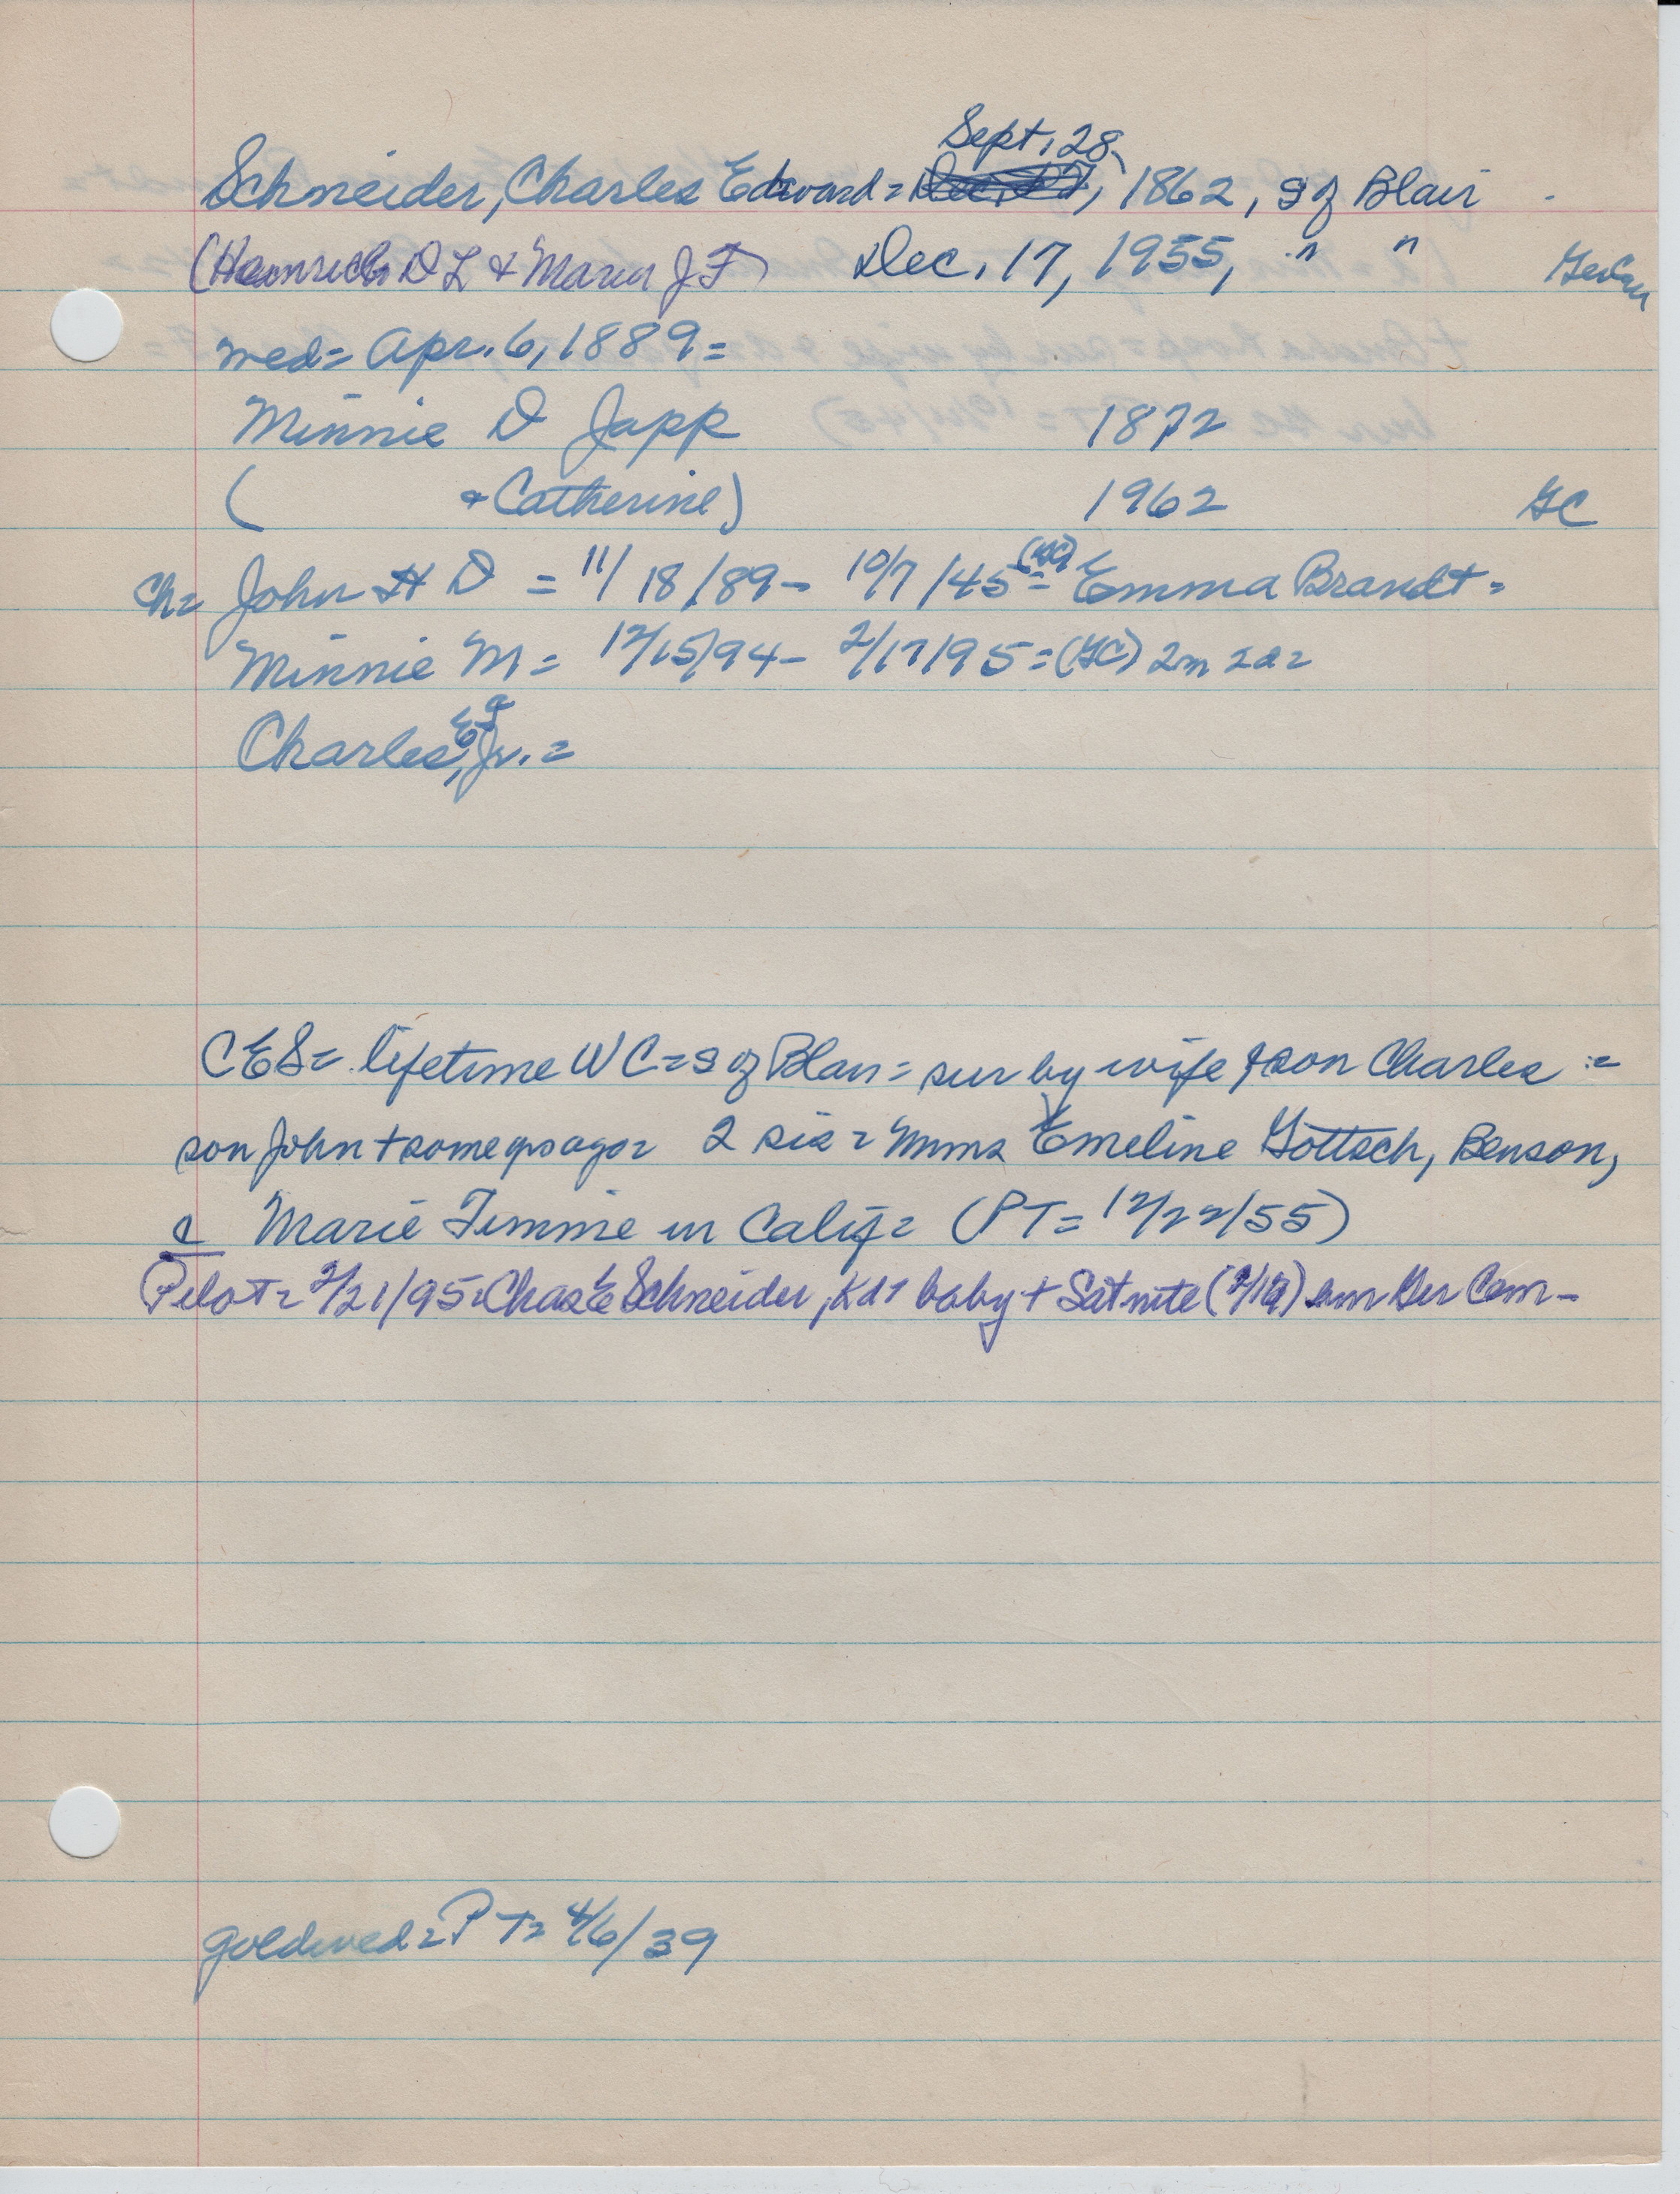 Sept. 28,
Schneider, Charles Edward = 1862, s of Blair
(Heinrich D L & Maria J F) Dec. 17, 1955, " "
wed = Apr. 6, 1889 =
Minnie D Japp 1872
( & Catherine) 1962 GC
Ch = John H D = 11/18/89 - 10/7/45 = (GC) Emma Brandt =
Minnie M = 12/15/94 - 2/17/95 = (GC) 2m 2d =
Charles E, Jr. =
CES = lifetime WC = s of Blair = sur by wife & son Charles =
son John + some yrs ago = 2 sis = Mmes Emeline Göttsch, Benson,
& Marie Timme in Calif = (PT = 12/22/55)
Pilot = 2/21/95 = Chas E Schneider, baby + Sat nite Ger Cem -
goldwed = PT = 4/6/39